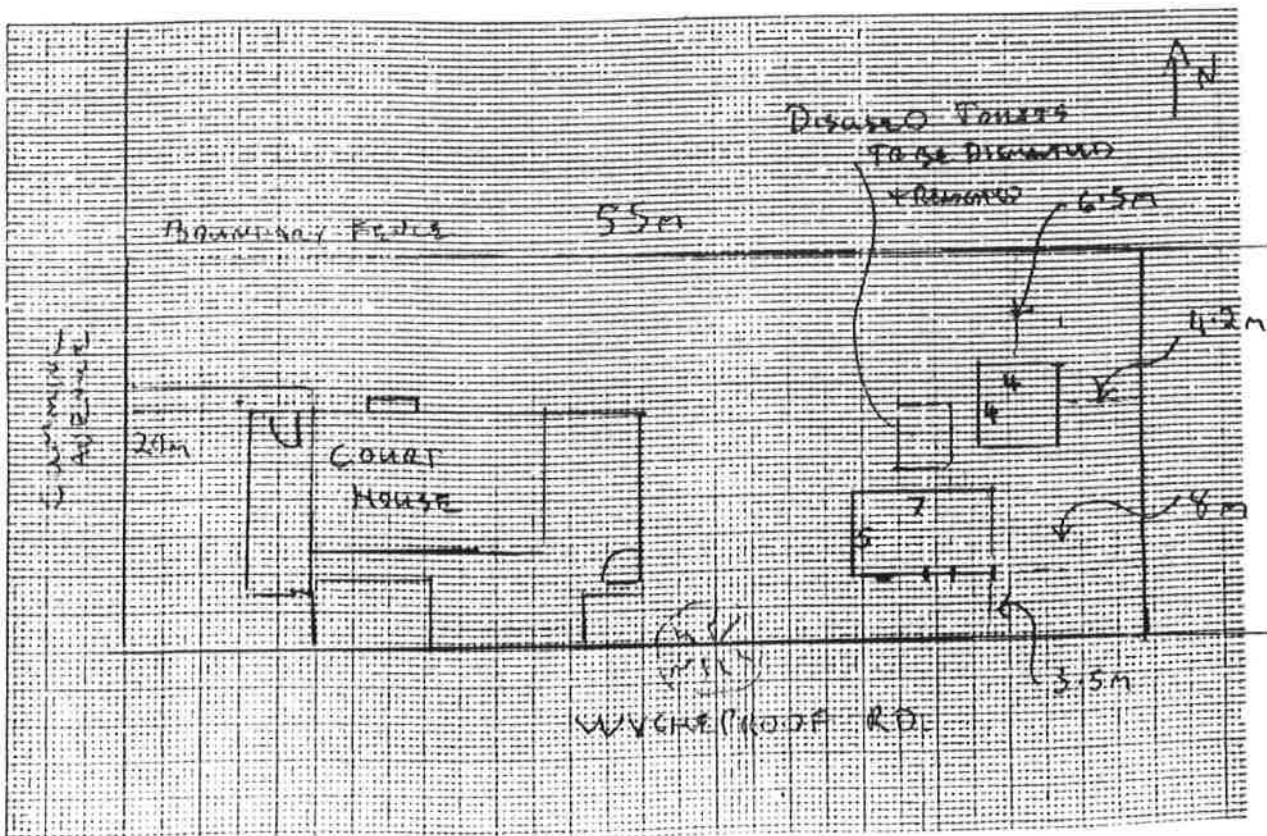 N
DISUSED TOILETS
TO BE DISMANTLED
+ REMOVED
6.5m
BOUNDARY FENCE
55m
4.2m
AVENUE
20m
COURT
HOUSE
4
4
7
5
8m
3.5m
WYCHEPROOF RD.